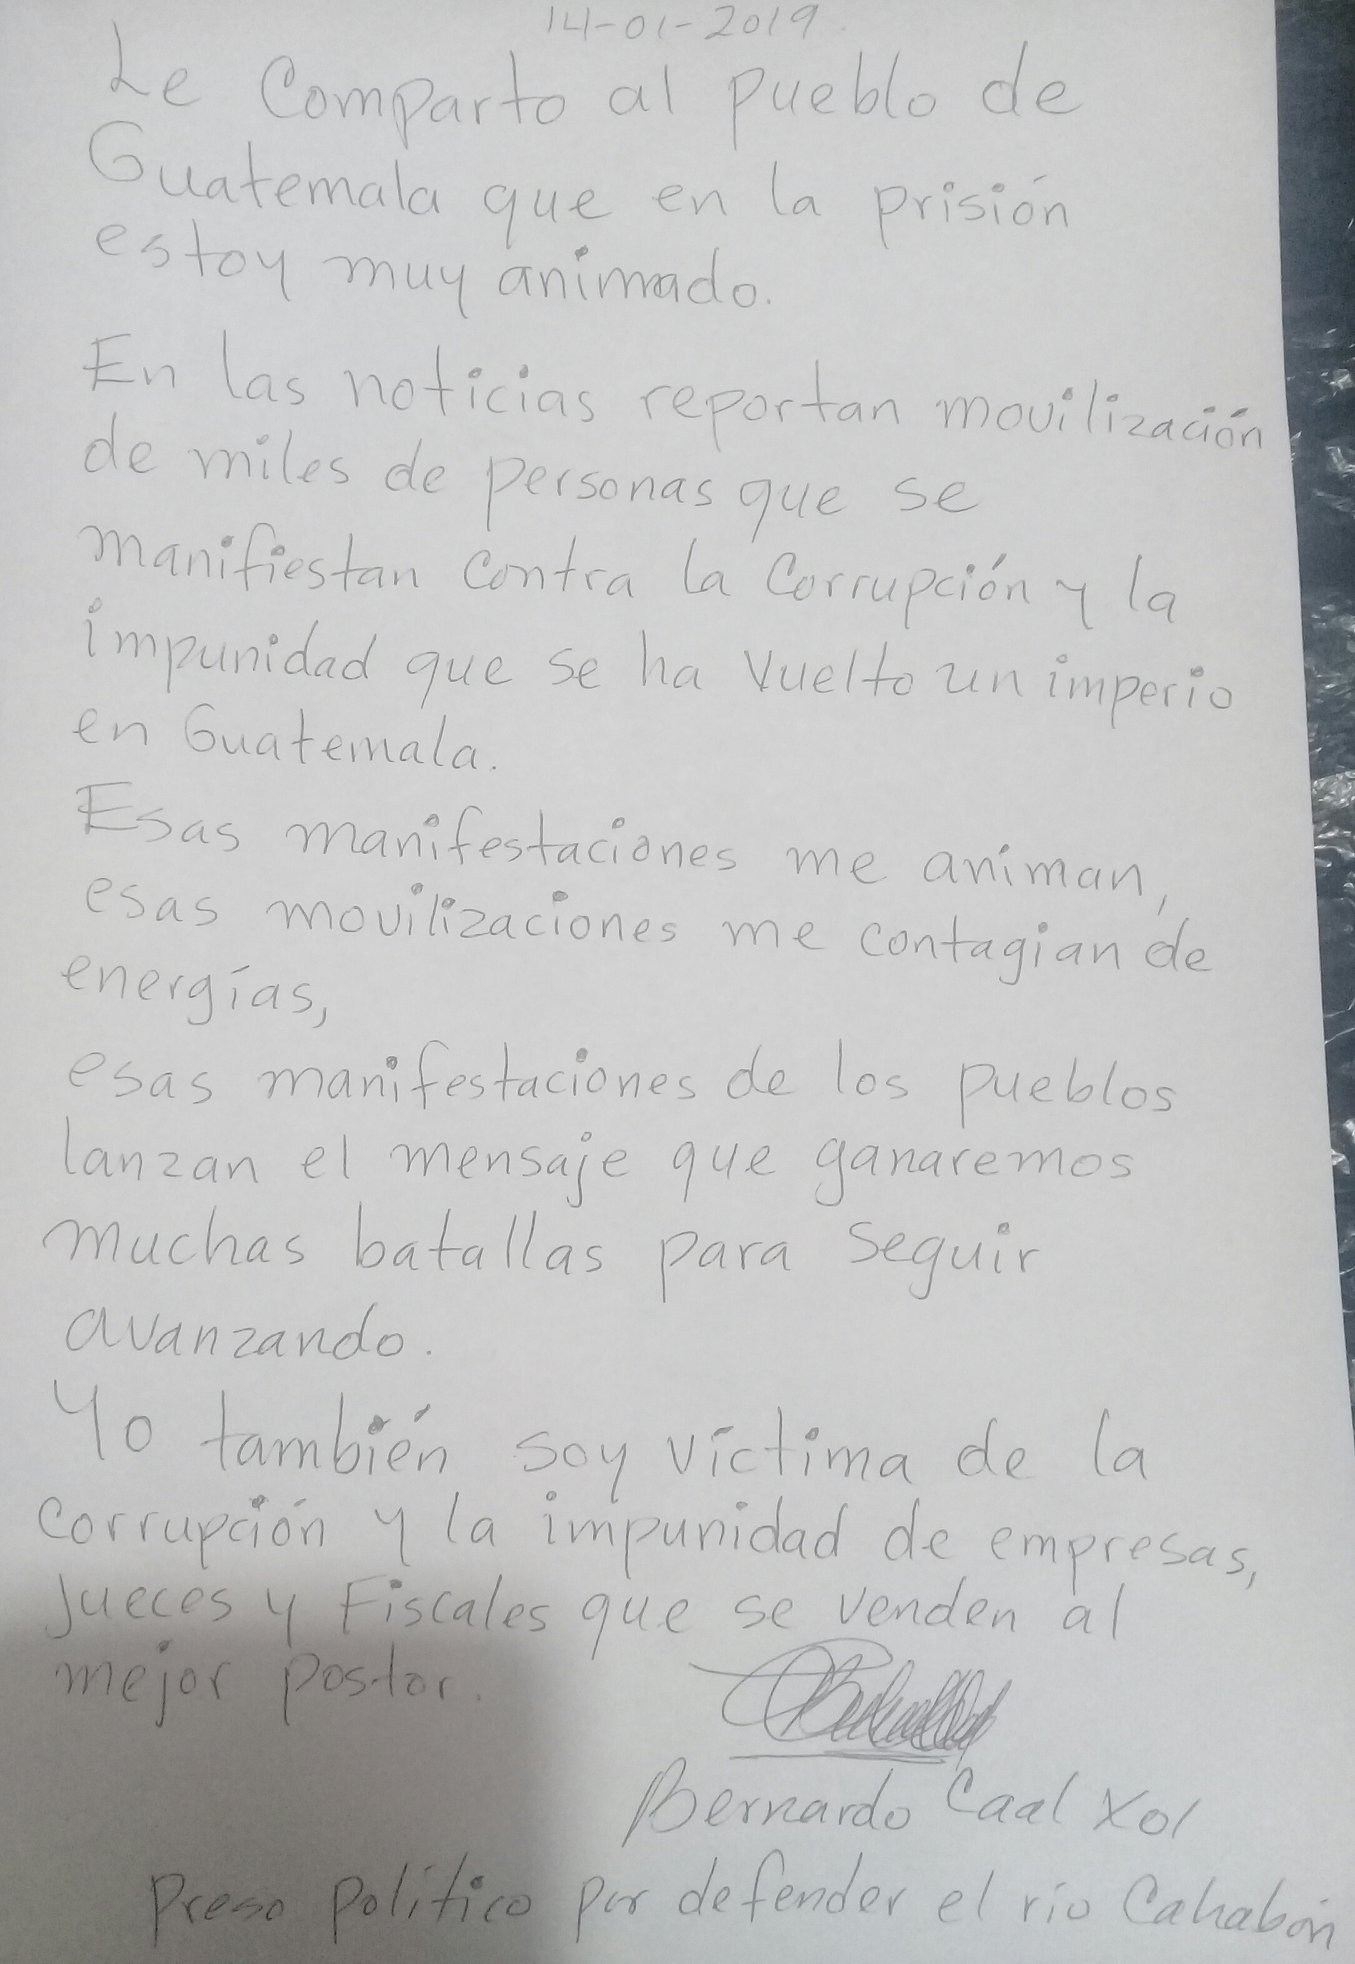 14-01-2019.
Le Comparto al pueblo de
Guatemala que en la prisión
estoy muy animado.
En las noticias reportan movilización
de miles de personas que se
manifiestan contra la Corrupción y la
impunidad que se ha vuelto un imperio
en Guatemala.
Esas manifestaciones me animan,
esas movilizaciones me contagian de
energías,
esas manifestaciones de los pueblos
lanzan el mensaje que ganaremos
muchas batallas para seguir
avanzando.
Yo también soy víctima de la
corrupción y la impunidad de empresas,
Jueces y Fiscales que se venden al
mejor postor.
Bernardo Caal Xol
Preso político por defender el río Cahabón